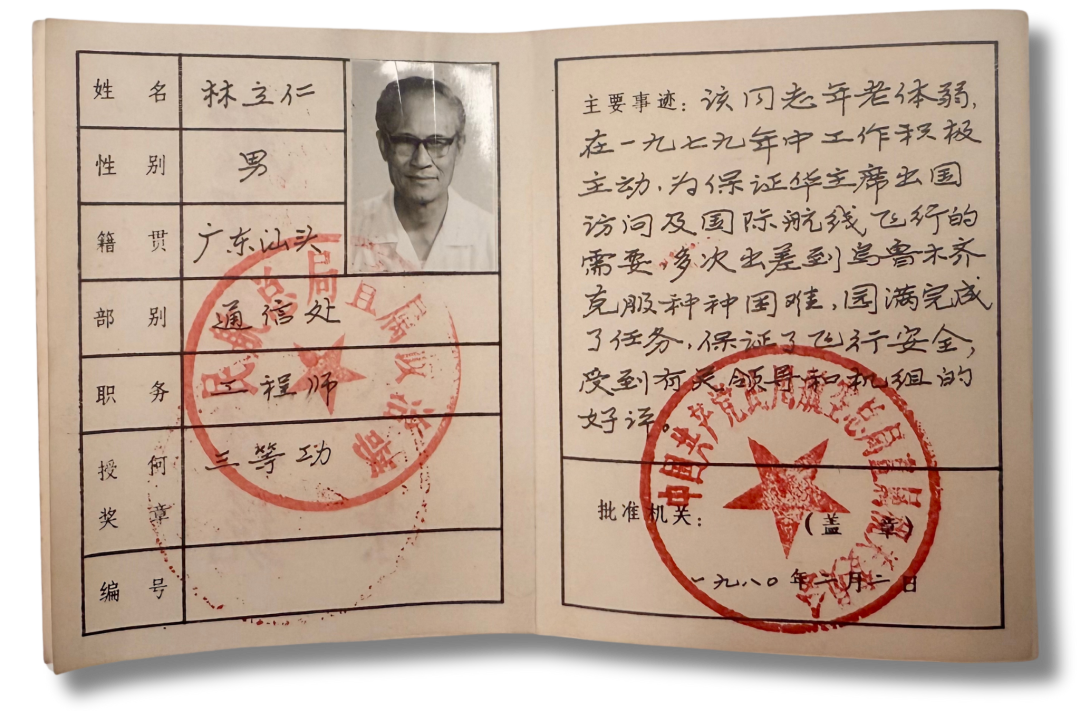 姓 名 林立仁
性 别 男
籍 贯 广东汕头
部 别 通信处
职 务 工程师
授 何 三等功
奖 章
编 号
主要事迹：该同志年老体弱，
在一九七九年中工作积极
主动，为保证华主席出国
访问及国际航线飞行的
需要，多次出差到烏鲁木齐
克服种种困难，园满完成
了任务，保证了飞行安全，
受到有关领导和机组的
好评。
批准机关：
（盖 章）
一九八〇年二月二日